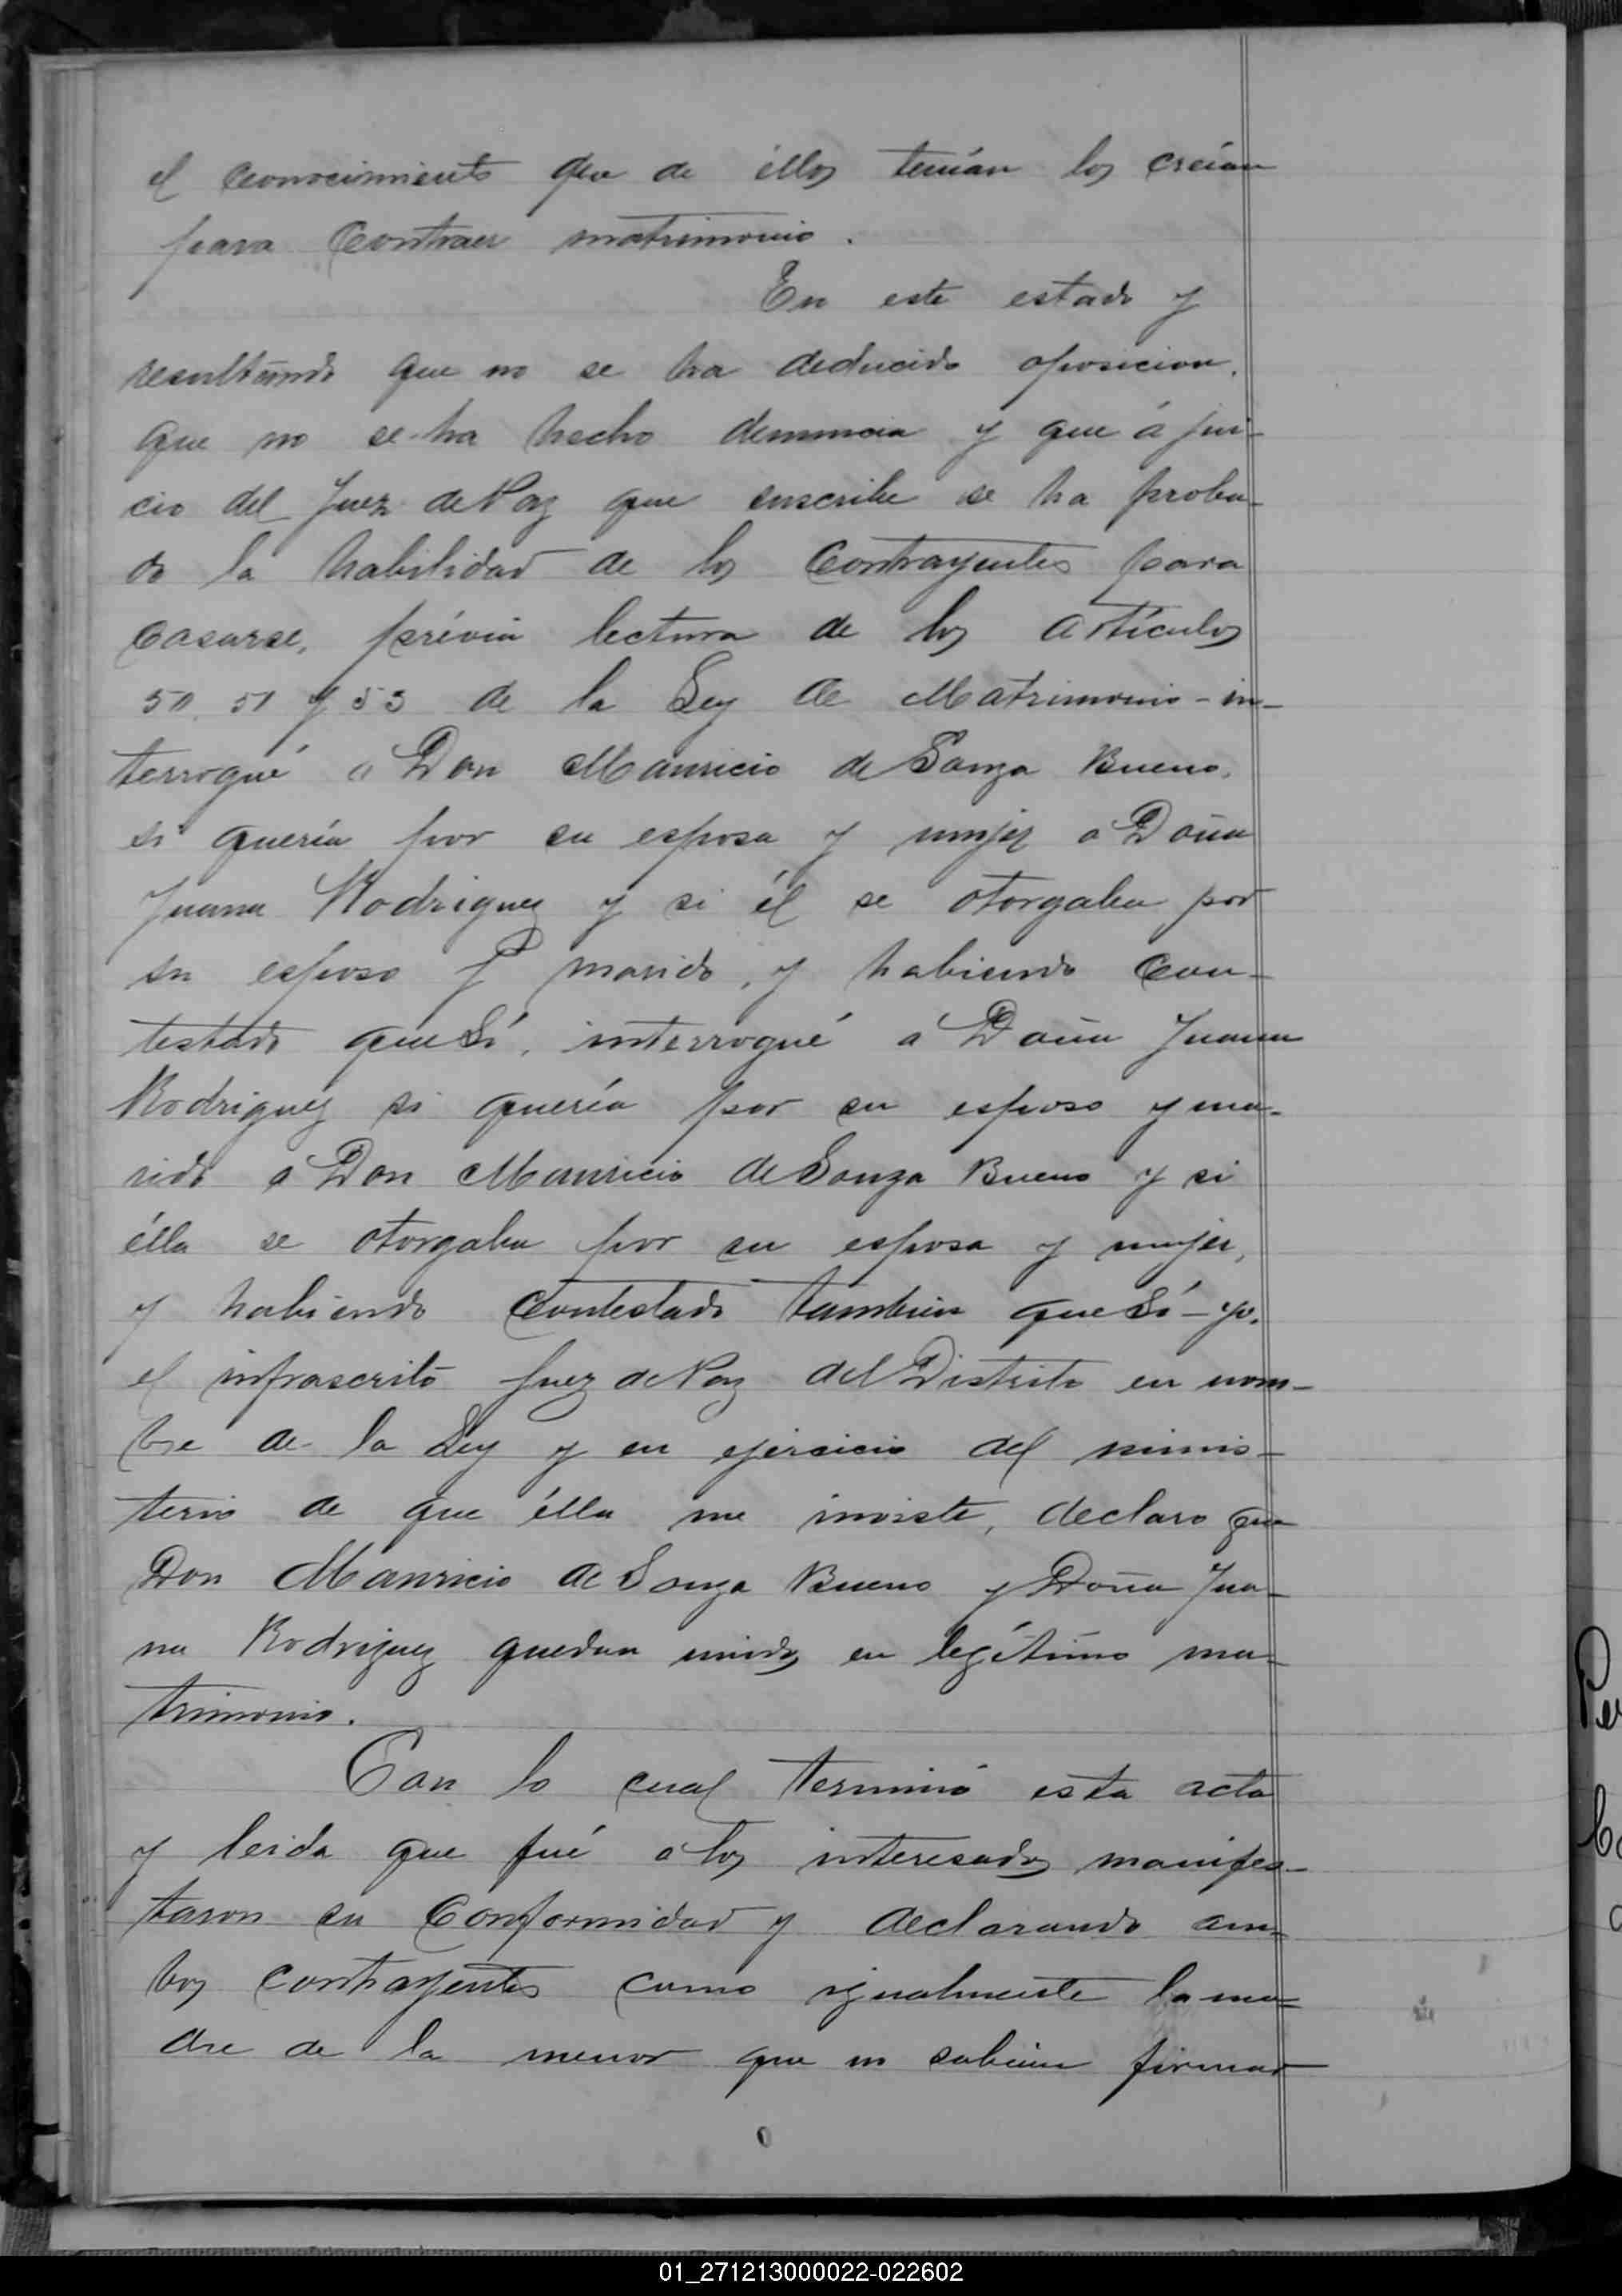 el conocimiento que de éllos tenían los creían
para contraer matrimonio.
En este estado y
resultando que no se ha deducido oposicion,
que no se ha hecho denuncia y que á jui-
cio del Juez de Paz que suscribe se ha proba-
do la habilidad de los contrayentes para
casarse, prévia lectura de los artículos
50, 51 y 53 de la Ley de Matrimonio - in-
terrogué á Don Mauricio de Souza Bueno,
si quería por su esposa y mujer a Doña
Juana Rodriguez y si él se otorgaba por
su esposo y marido, y habiendo con-
testado que Sí, interrogué á Doña Juana
Rodriguez si quería por su esposo y ma-
rido a Don Mauricio de Souza Bueno y si
élla se otorgaba por su esposa y mujer,
y habiendo contestado tambien que Sí - yo,
el infrascrito Juez de Paz del Distrito en nom-
bre de la Ley y en ejersicio del minis-
terio de que élla me inviste, declaro que
Don Mauricio de Souza Bueno y Doña Jua-
na Rodriguez quedan unidos en legítimo ma-
trimonio.
Con lo cual terminó esta acta
y leida que fué a los interesados manifes-
taron su conformidad y declarando am-
bos contrayentes como igualmente la ma-
dre de la menor que no sabian firmar
Per
01_271213000022-022602